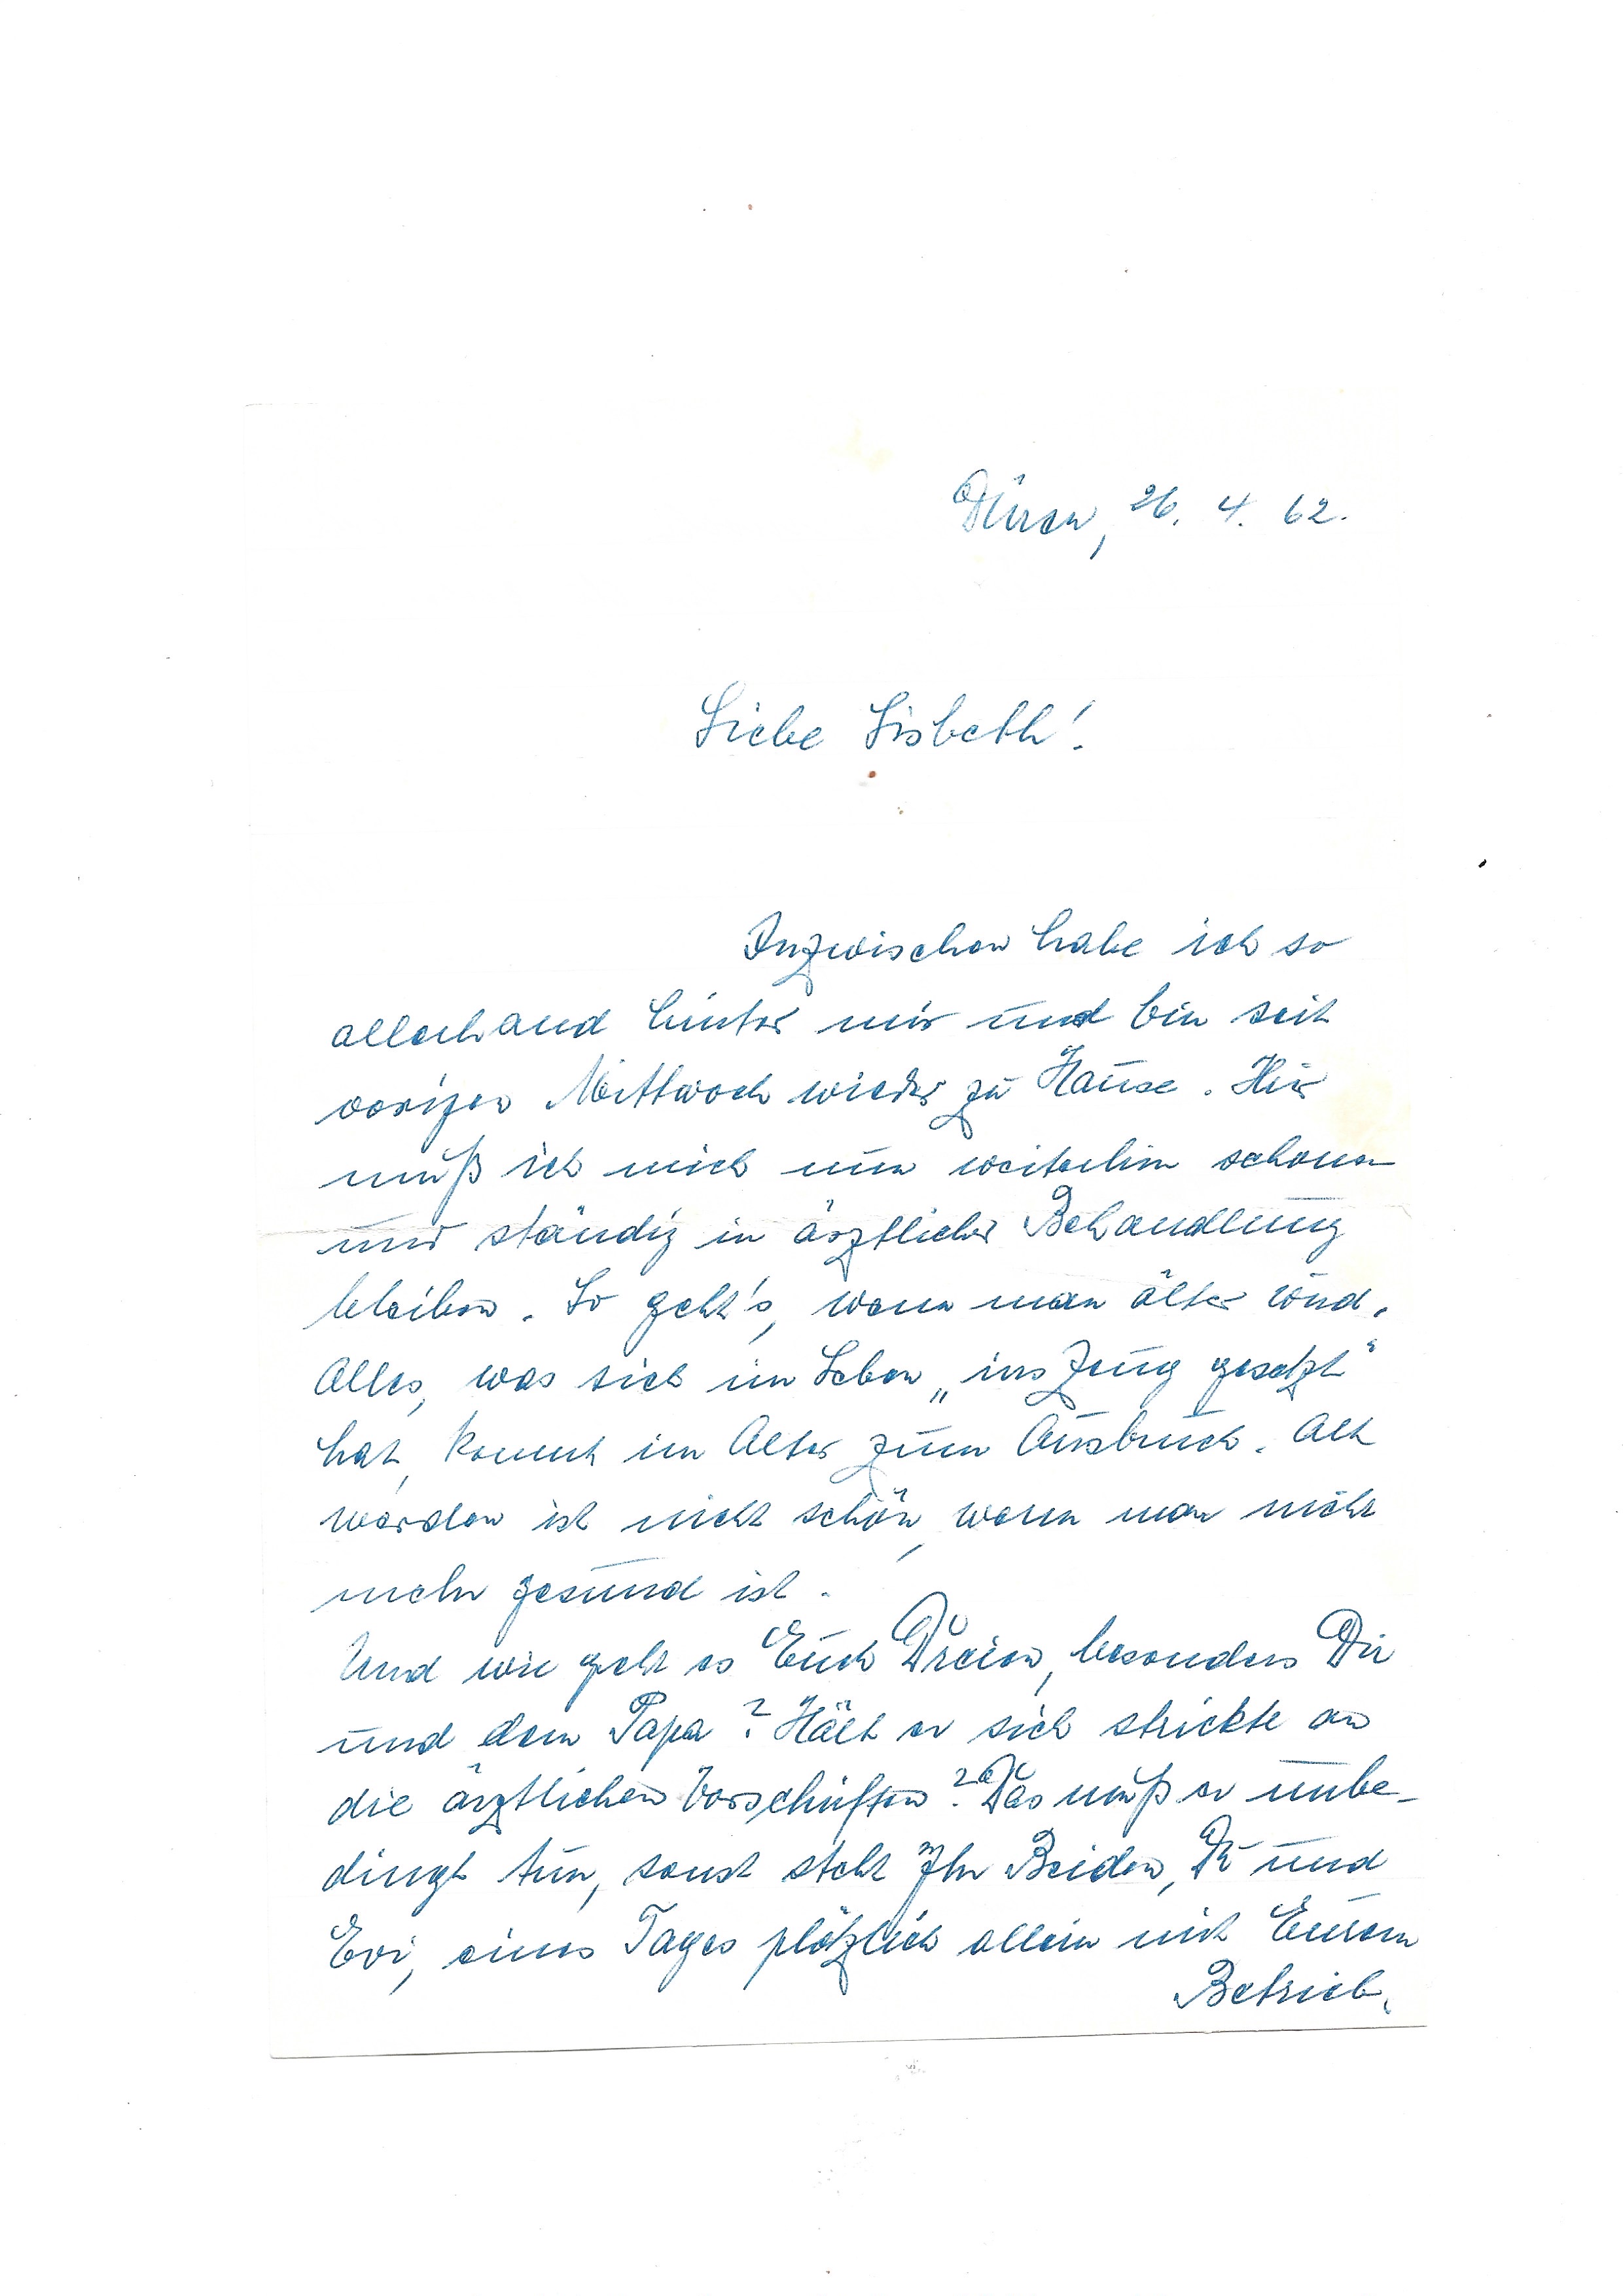 Düren, 26. 4. 62.
Liebe Lisbeth!
Inzwischen habe ich so
allerhand hinter mir und bin seit
vorigen Mittwoch wieder zu Hause. Hier
muß ich mich nun weiterhin schonen
und ständig in ärztlicher Behandlung
bleiben. So geht's, wenn man älter wird.
Alles, was sich im Leben „ins Zeug gesetzt“
hat, kommt im Alter zum Ausbruch. Alt
werden ist nicht schön, wenn man nicht
mehr gesund ist.
Und wie geht es Euch Dreien, besonders Dir
und dem Papa? Hält er sich strickte an
die ärztlichen Vorschriften? Das muß er unbe-
dingt tun, sonst steht Ihr Beiden, Du und
Evi, eines Tages plötzlich allein mit Eurem
Betrieb.